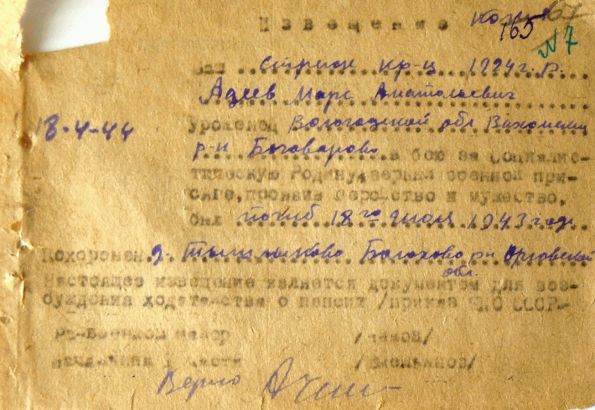 Извещение
165
№ 7
ваш стрелок кр-ц 1924 г. р.
Адеев Марс Анатольевич
18-4-44
уроженец Вологодской обл Вохомский
р-н Боговарово в бою за Социалис-
тическую Родину, верный военной при-
сяге, проявив геройство и мужество,
был погиб 18го июля 1943 года
Похоронен д. Болховско р-н Орловской
обл.
Настоящее извещение является документом для воз-
буждения ходатайства о пенсии /приказ НКО СССР
майор
/Емельянов/
Верно